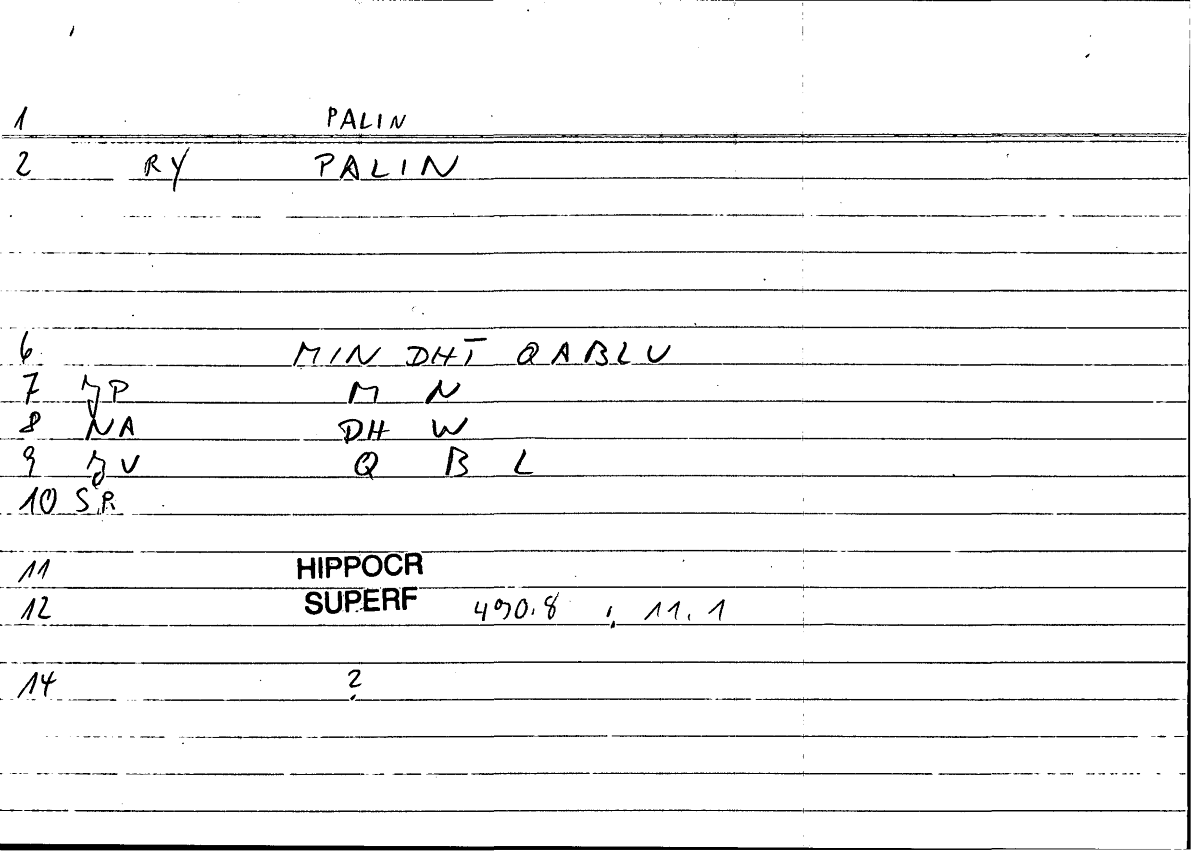 1 PALIN
2 RY PALIN
6 MIN DHT QABLU
7 P M N
8 NA DH W
9 V Q B L
10 SR
11 HIPPOCR
12 SUPERF 490.8 ; 11.1
14 ?